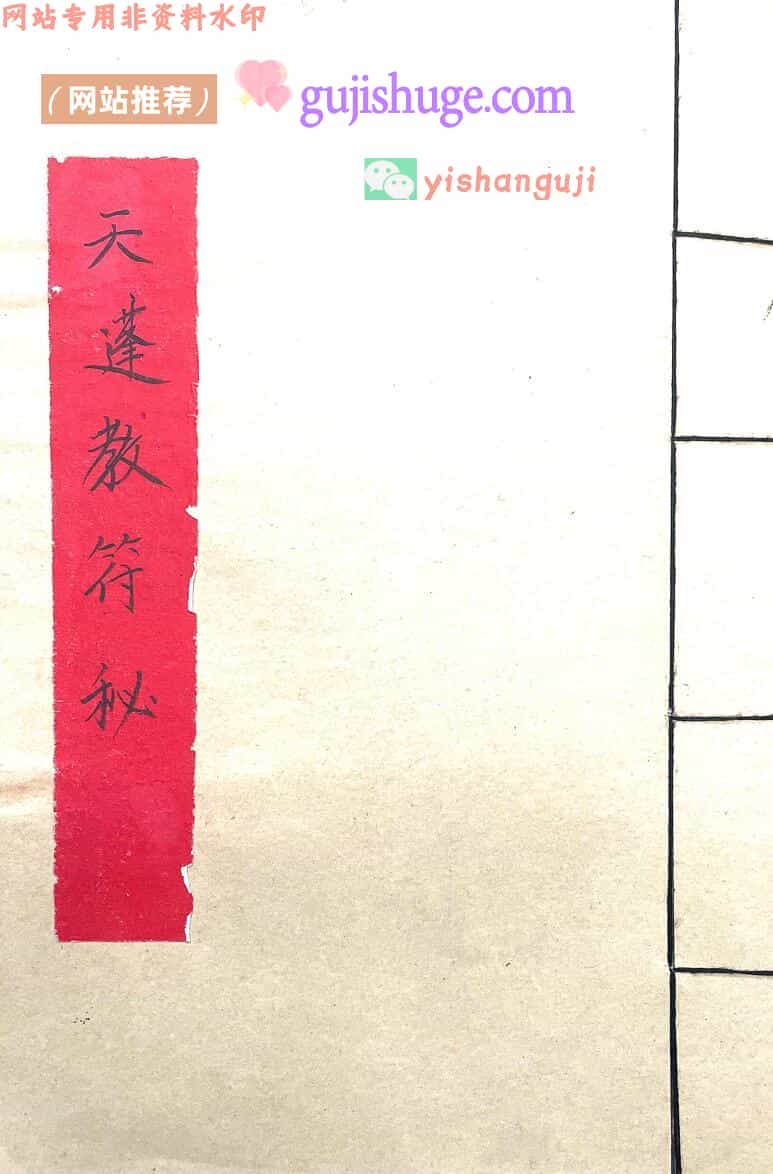 网站专用非资料水印
（网站推荐）
gujishuge.com
yishanguji
天蓬教符秘